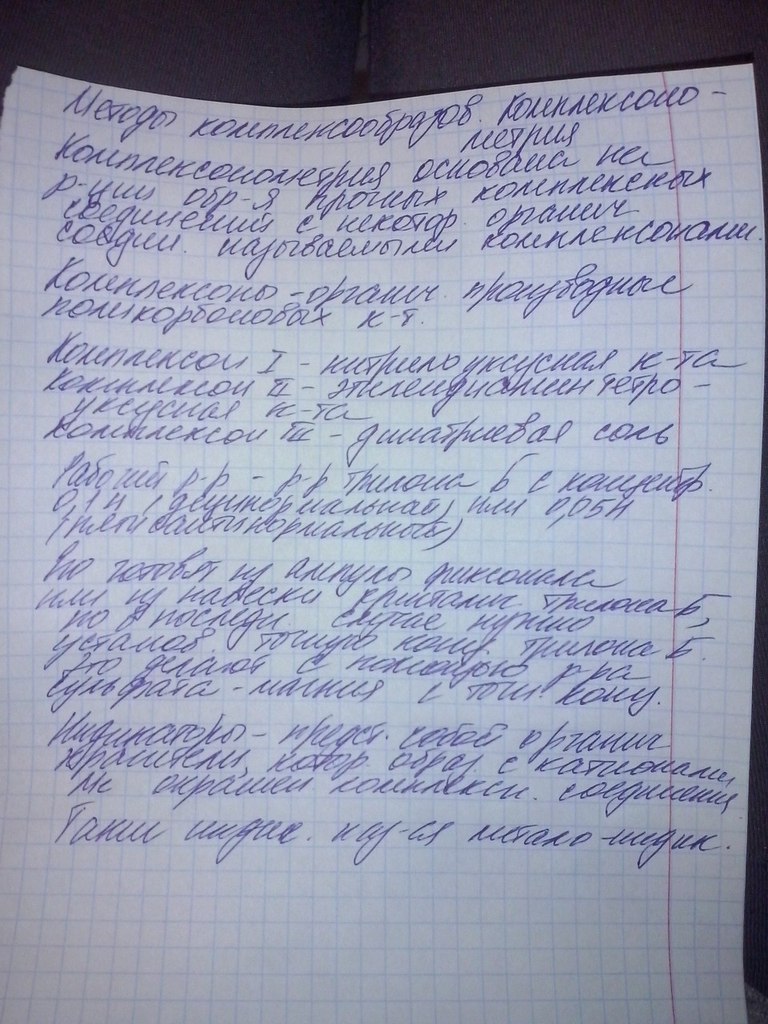 Методы комплексообразов. Комплексоно-
метрия
Комплексонометрия основана на
р-ции обр-я прочных комплексных
соединений с некотор. органич
соедин. называемыми комплексонами.
Комплексоны - органич. производные
поликарбоновых к-т.
Комплексон I - нитрилоуксусная к-та
Комплексон II - этилендиаминтетро-
уксусная к-та
Комплексон III - динатриевая соль
Рабочий р-р - р-р трилона Б с концентр.
0,1н (децинормальный) или 0,05н
(пятисантинормальный)
Его готовят из ампулы фиксонала
или из навески кристалич. трилона Б,
но в последн. случае нужно
установ. точную конц. трилона Б.
Это делают с помощью р-ра
сульфата - магния с точн. конц.
Индикаторы - предст. собой органич
красители, котор образ с катионами
Ме окрашен комплексн. соединения
Такие индик. наз-ся метало-индик.